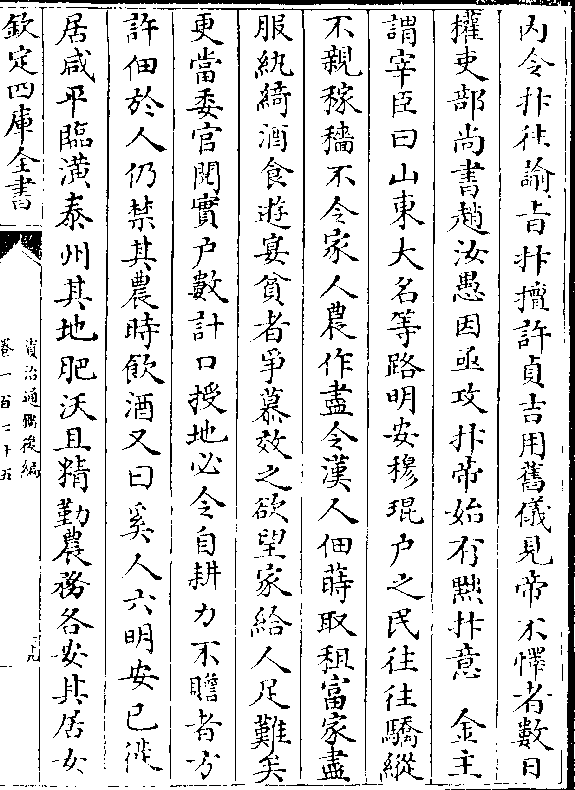 内令抃往諭㫖抃擅許貞吉用舊儀見帝不懌者數日
擢吏部尚書趙汝愚因亟攻抃帝始有黙抃意　金主
謂宰臣曰山東大名等路明安穆琨户之民往往驕縱
不親稼穡不令家人農作盡令漢人佃蒔取租富家盡
服紈綺酒食遊宴貧者爭慕效之欲望家給人足難矣
更當委官閲實户數計口授地必令自耕力不贍者方
許佃於人仍禁其農時飲酒又曰奚人六明安已徙
居咸平臨潢泰州其地肥沃且精勤農務各安其居女
欽定四庫全書
資治通鑑後編
卷一百二十五